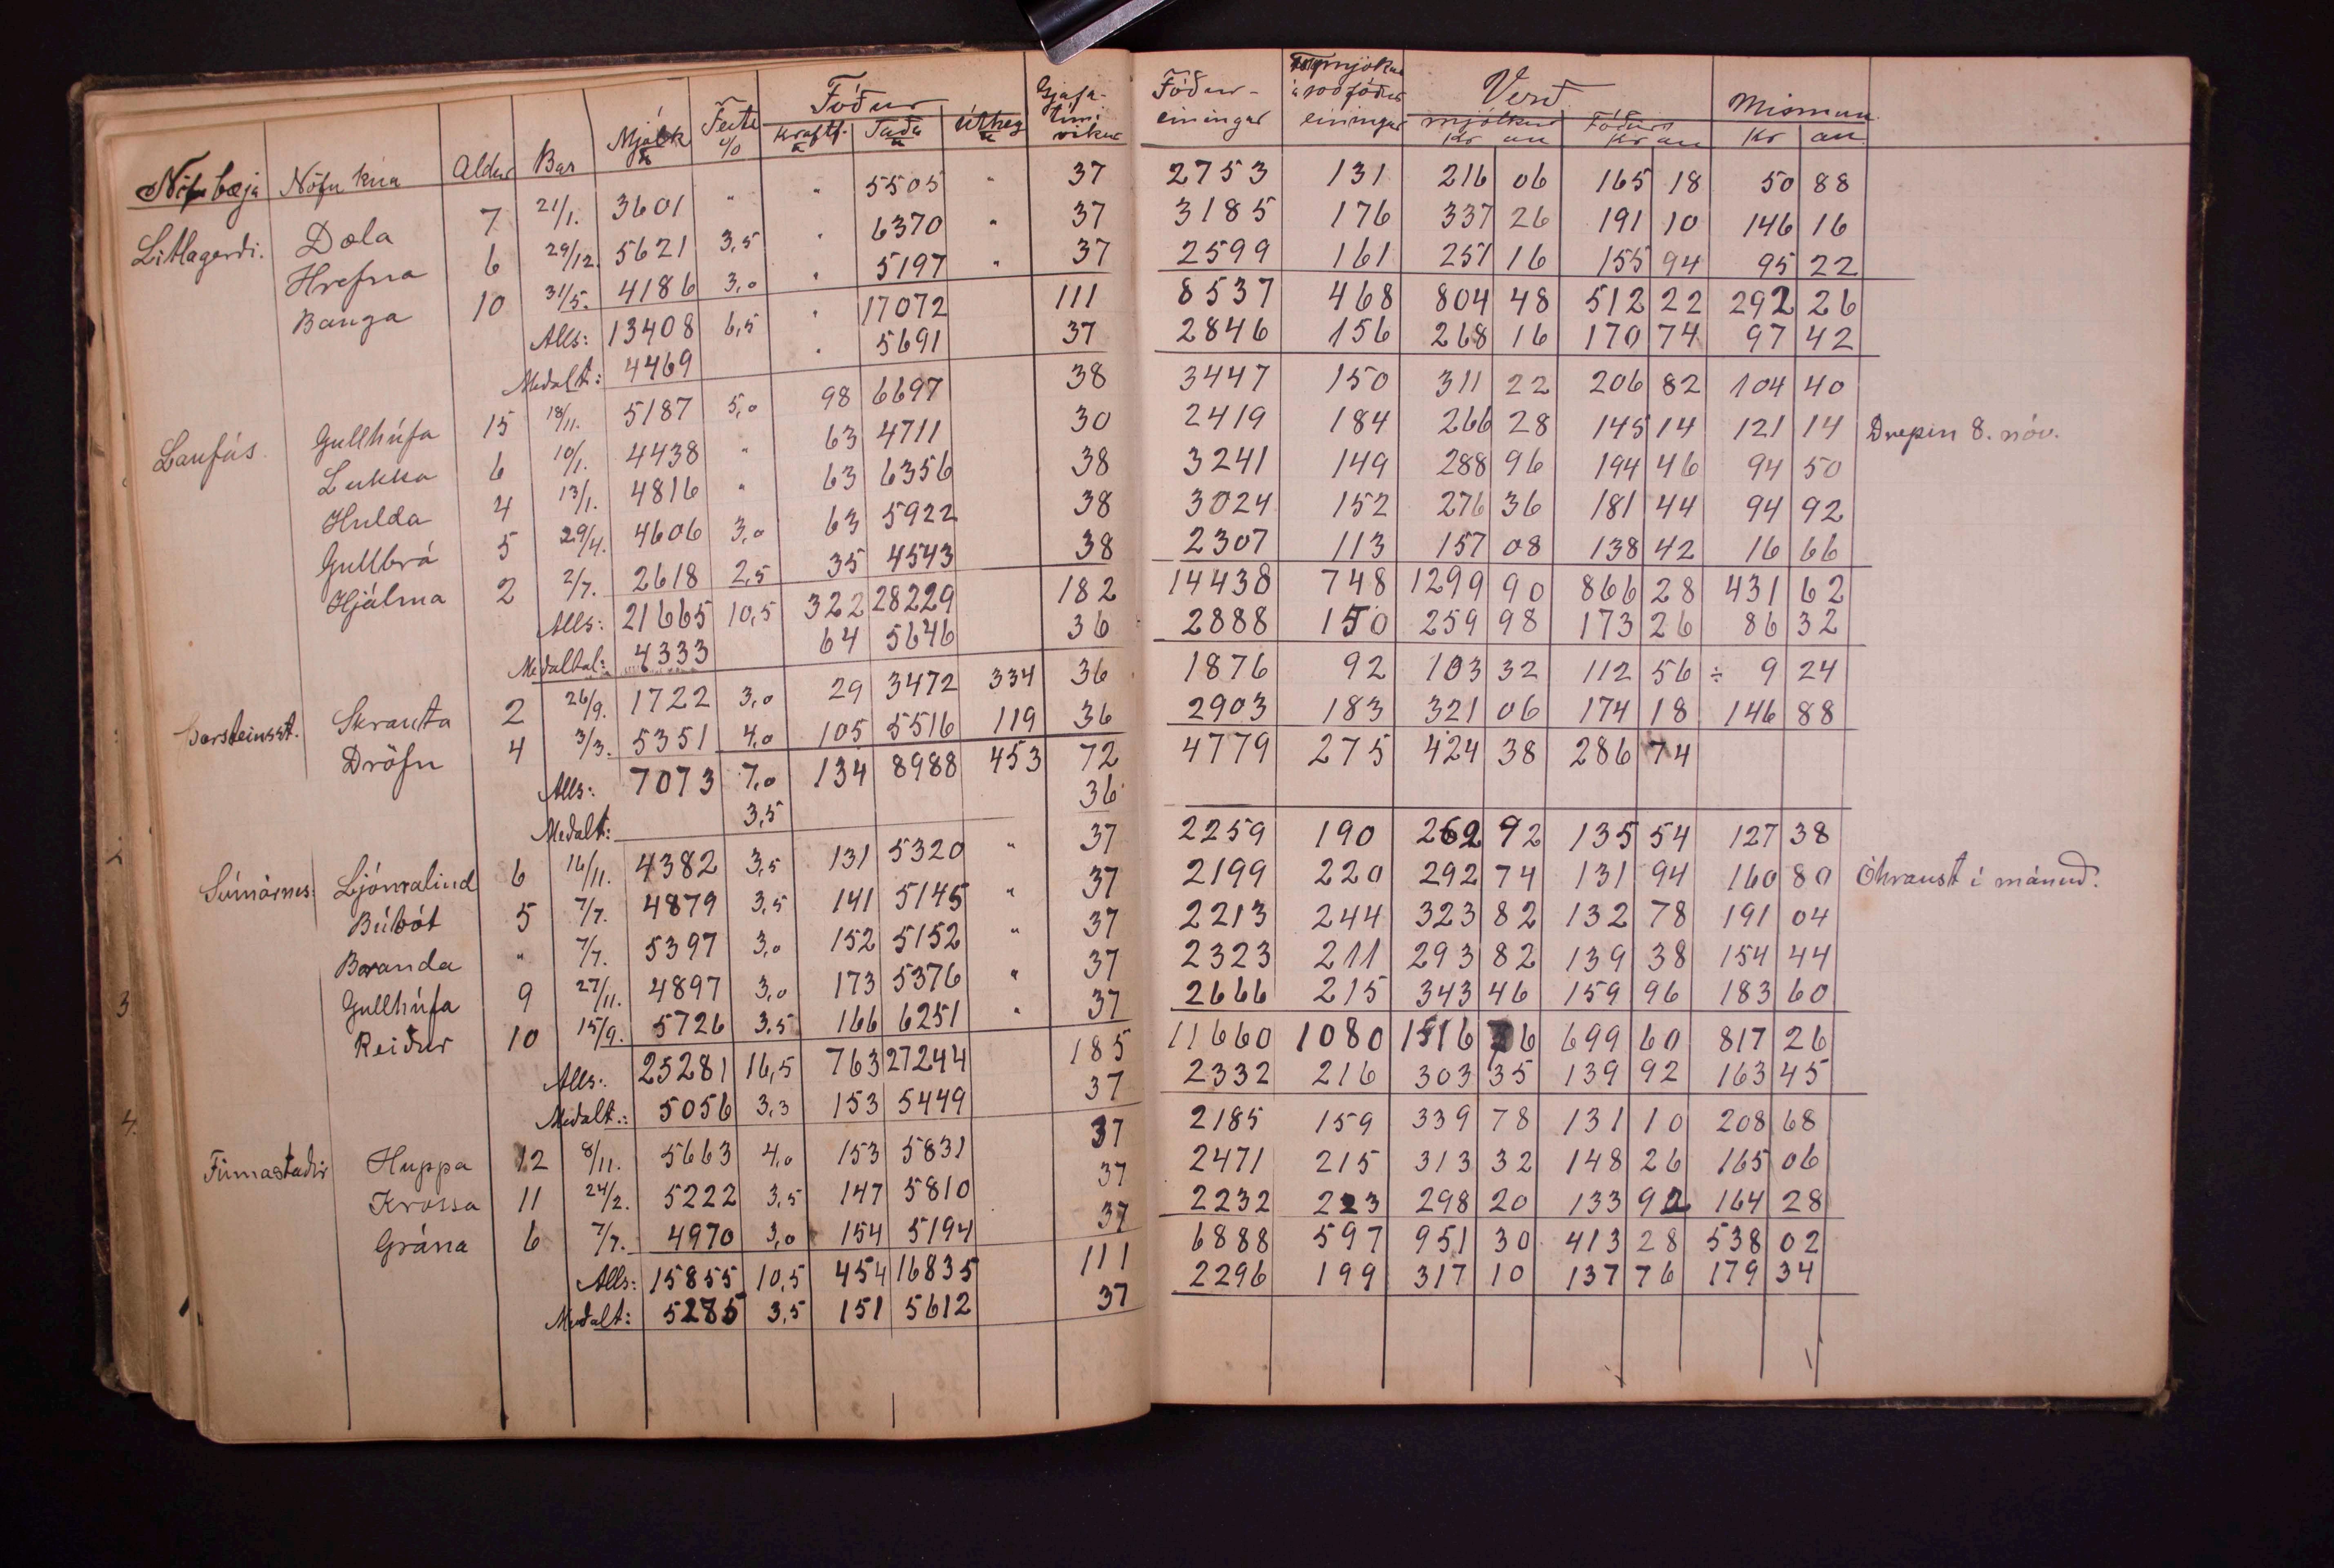 Föður
Gjafa-
Nöfn bæja Nöfn kúa Aldur Bar Mjólk Feiti % kraftf. Taða Úthey tími vikur
Föður- einingar einingar Verð mjólkur Kr au Föðurs Kr au Mismun Kr au
Litlagerði. Dola 7 21/1. 3601 " " 5505 " 37 2753 131 216 06 165 18 50 88
Hrefna 6 29/12. 5621 3,5 " 6370 " 37 3185 176 337 26 191 10 146 16
Banga 10 31/5. 4186 3,0 " 5197 " 37 2599 161 251 16 155 94 95 22
Alls: 13408 6,5 " 17072 111 8537 468 804 48 512 22 292 26
Medalt: 4469 " 5691 37 2846 156 268 16 170 74 97 42
Laufás. Gullhúfa 15 18/11. 5187 5,0 98 6697 38 3447 150 311 22 206 82 104 40
Lukka 6 10/1. 4438 " 63 4711 30 2419 184 266 28 145 14 121 14 Drepin 8. nóv.
Hulda 4 13/1. 4816 " 63 6356 38 3241 149 288 96 194 46 94 50
Gullbrá 5 29/4. 4606 3,0 63 5922 38 3024 152 276 36 181 44 94 92
Hjálma 2 2/7. 2618 2,5 35 4543 38 2307 113 157 08 138 42 16 66
Alls: 21665 10,5 322 28229 182 14438 748 1299 90 866 28 431 62
Medaltal: 4333 64 5646 36 2888 150 259 98 173 26 86 32
Þorsteinsst. Skrauta 2 26/9. 1722 3,0 29 3472 334 36 1876 92 103 32 112 56 ÷ 9 24
Dröfn 4 3/3. 5351 4,0 105 5516 119 36 2903 183 321 06 174 18 146 88
Alls: 7073 7,0 134 8988 453 72 4779 275 424 38 286 74
Medalt: 3,5 36
Ljómalind 6 16/11. 4382 3,5 131 5320 " 37 2259 190 262 92 135 54 127 38
Búbót 5 7/7. 4879 3,5 141 5145 " 37 2199 220 292 74 131 94 160 80 Óhraust í mánuð.
Branda " 7/7. 5397 3,0 152 5152 " 37 2213 244 323 82 132 78 191 04
Gullhúfa 9 27/11. 4897 3,0 173 5376 " 37 2323 211 293 82 139 38 154 44
Reiður 10 15/9. 5726 3,5 166 6251 " 37 2666 215 343 46 159 96 183 60
Alls: 25281 16,5 763 27244 185 11660 1080 1516 699 60 817 26
Medalt.: 5056 3,3 153 5449 37 2332 216 303 35 139 92 163 45
Finnastaðir Huppa 12 8/11. 5663 4,0 153 5831 37 2185 159 339 78 131 10 208 68
Krossa 11 24/2. 5222 3,5 147 5810 37 2471 215 313 32 148 26 165 06
Grána 6 7/7. 4970 3,0 154 5194 37 2232 223 298 20 133 92 164 28
Alls: 15855 10,5 454 16835 111 6888 597 951 30 413 28 538 02
Medalt: 5285 3,5 151 5612 37 2296 199 317 10 137 76 179 34